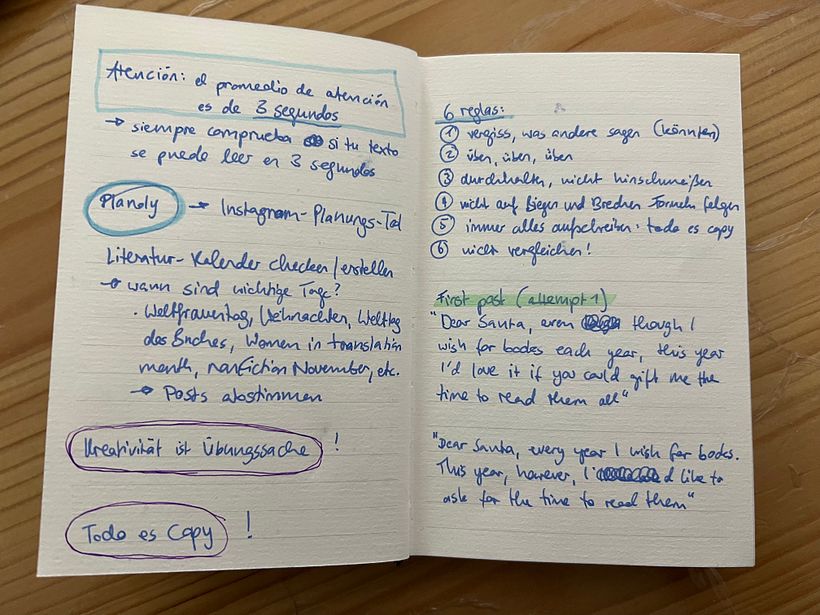 Atención: el promedio de atención
es de 3 segundos
→ siempre comprueba si tu texto
se puede leer en 3 segundos
Planoly → Instagram-Planungs-Tool
Literatur-Kalender checken/erstellen
→ wann sind wichtige Tage?
· Weltfrauentag, Weihnachten, Welttag
des Buches, Women in translation
month, nonfiction November, etc.
→ Posts abstimmen
Kreativität ist Übungssache !
Todo es Copy !
6 reglas:
① vergiss, was andere sagen (könnten)
② üben, üben, üben
③ durchhalten, nicht hinschmeißen
④ nicht auf Biegen und Brechen Formeln folgen
⑤ immer alles aufschreiben: todo es copy
⑥ nicht vergleichen!
First post (attempt 1)
"Dear Santa, even though I
wish for books each year, this year
I'd love it if you could gift me the
time to read them all"
"Dear Santa, every year I wish for books.
This year, however, I'd like to
ask for the time to read them"